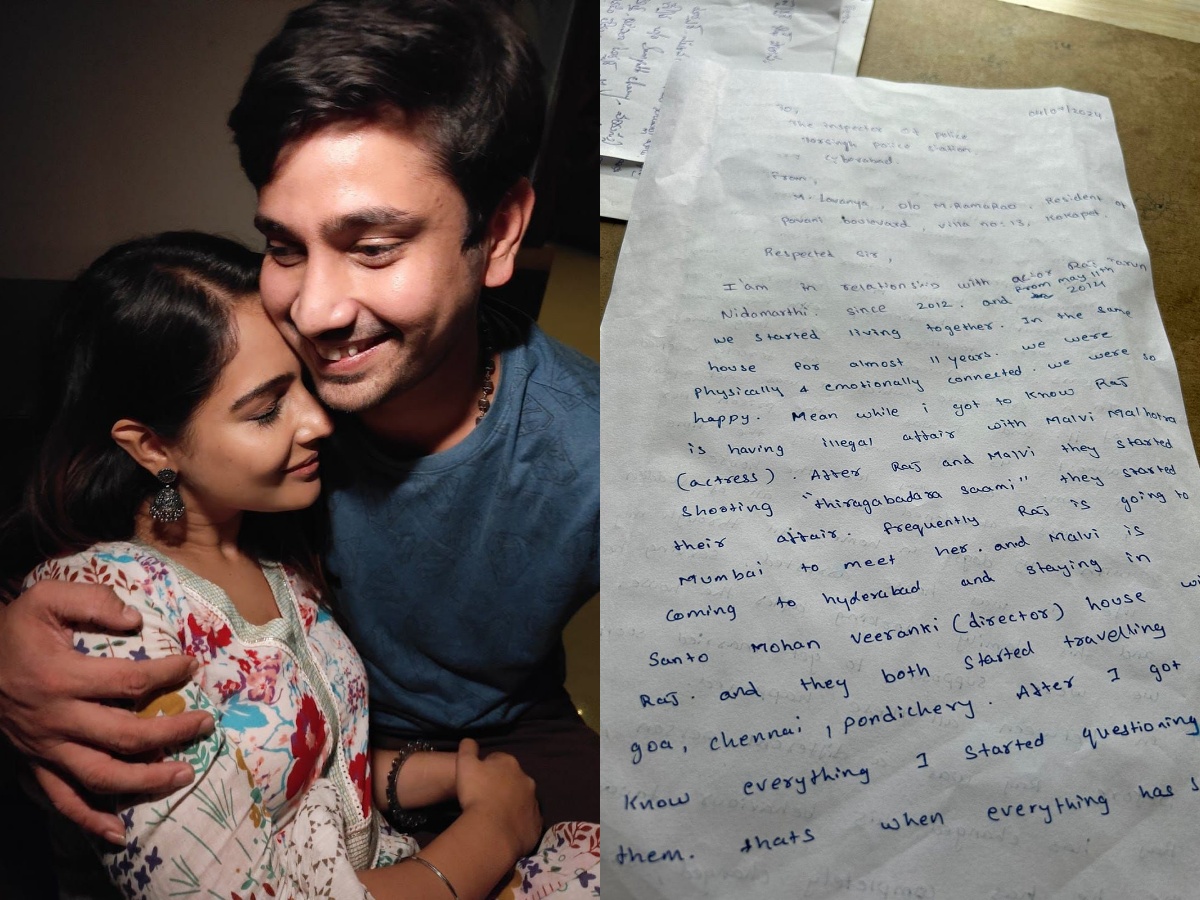 04/07/2024
To,
The Inspector of police
Narsingh police station
Cyberabad.
From,
M. Lavanya, D/o M.RamaRao, Resident of
Pavani boulevard, villa no:13, Kokapet.
Respected sir,
I'am in relationship with actor Raj Tarun
Nidamarthi. since 2012. and from may 11th 2014
we started living together. In the same
house for almost 11 years. we were
physically & emotionally connected. we were so
happy. Mean while i got to know Raj
is having illegal affair with Malvi Malhotra
(actress). After Raj and Malvi they started
shooting "thiragabadara saami" they started
their affair. frequently Raj is going to
Mumbai to meet her. and Malvi is
coming to hyderabad and staying in
Santo Mohan Veeranki (director) house wi
Raj. and they both started travelling
goa, chennai, pondichery. After I got
know everything I started questioning
them. thats when everything has s